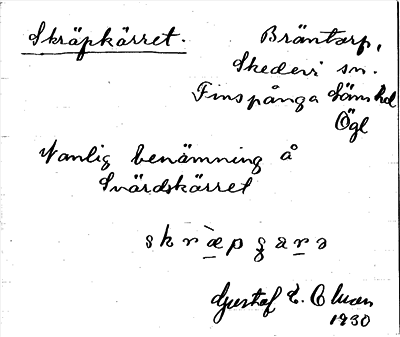 Skräpkärret.
Bräntorp,
Skedevi sn.
Finspånga läns hd
Ögl
Vanlig benämning å
Svärdskärret
Gustaf E. Olsson
1930